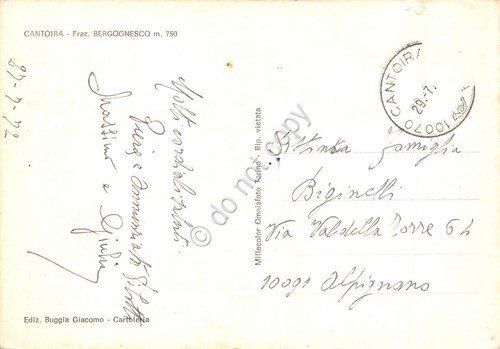 CANTOIRA - Fraz. BERGOGNESCO m. 750
27-7-72
Molti cordiali saluti
Piera e Annunziata
Massimo e Giulia
Ediz. Buggia Giacomo - Cartoleria
Millecolor Omniafoto Torino - Rip. vietata
10070 CANTOIRA
29.-7.
do not copy
Stima Famiglia
Biginelli
Via Valdella Torre 64
10091 Alpignano